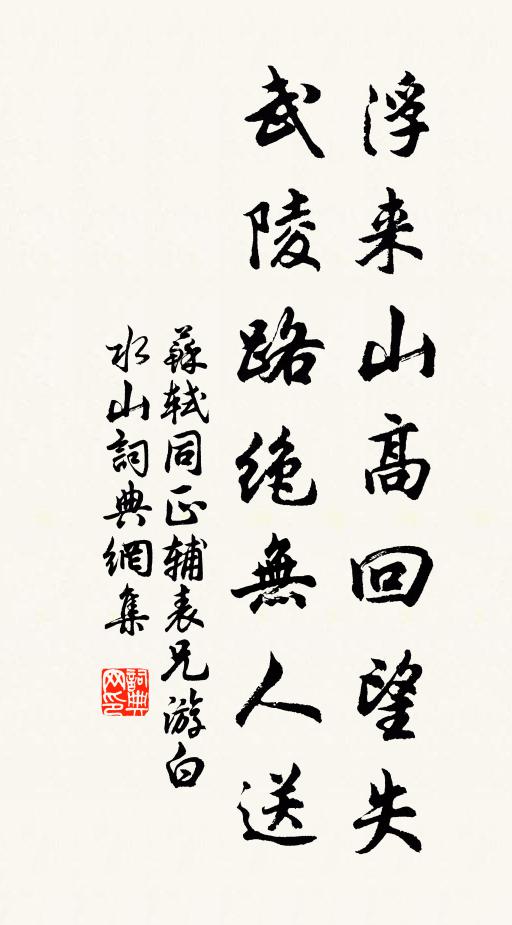 浮来山高回望失
武陵路绝無人送
蘇軾同正辅表兄游白
水山詞典網集
詞典网印